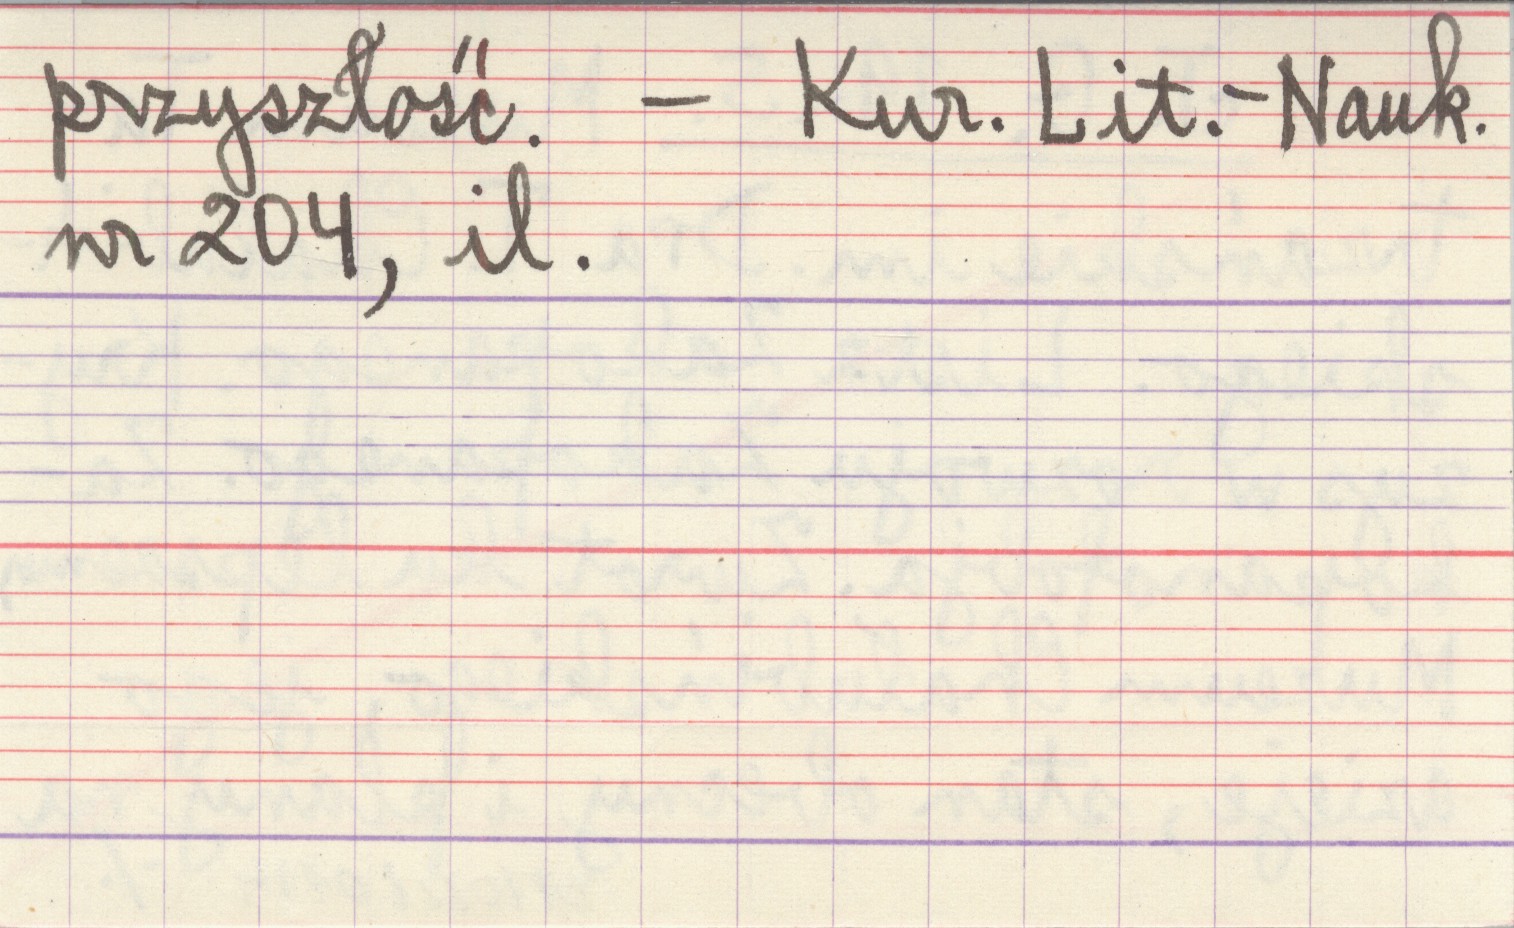 przyszłość. — Kur. Lit.-Nauk.
nr 204, il.